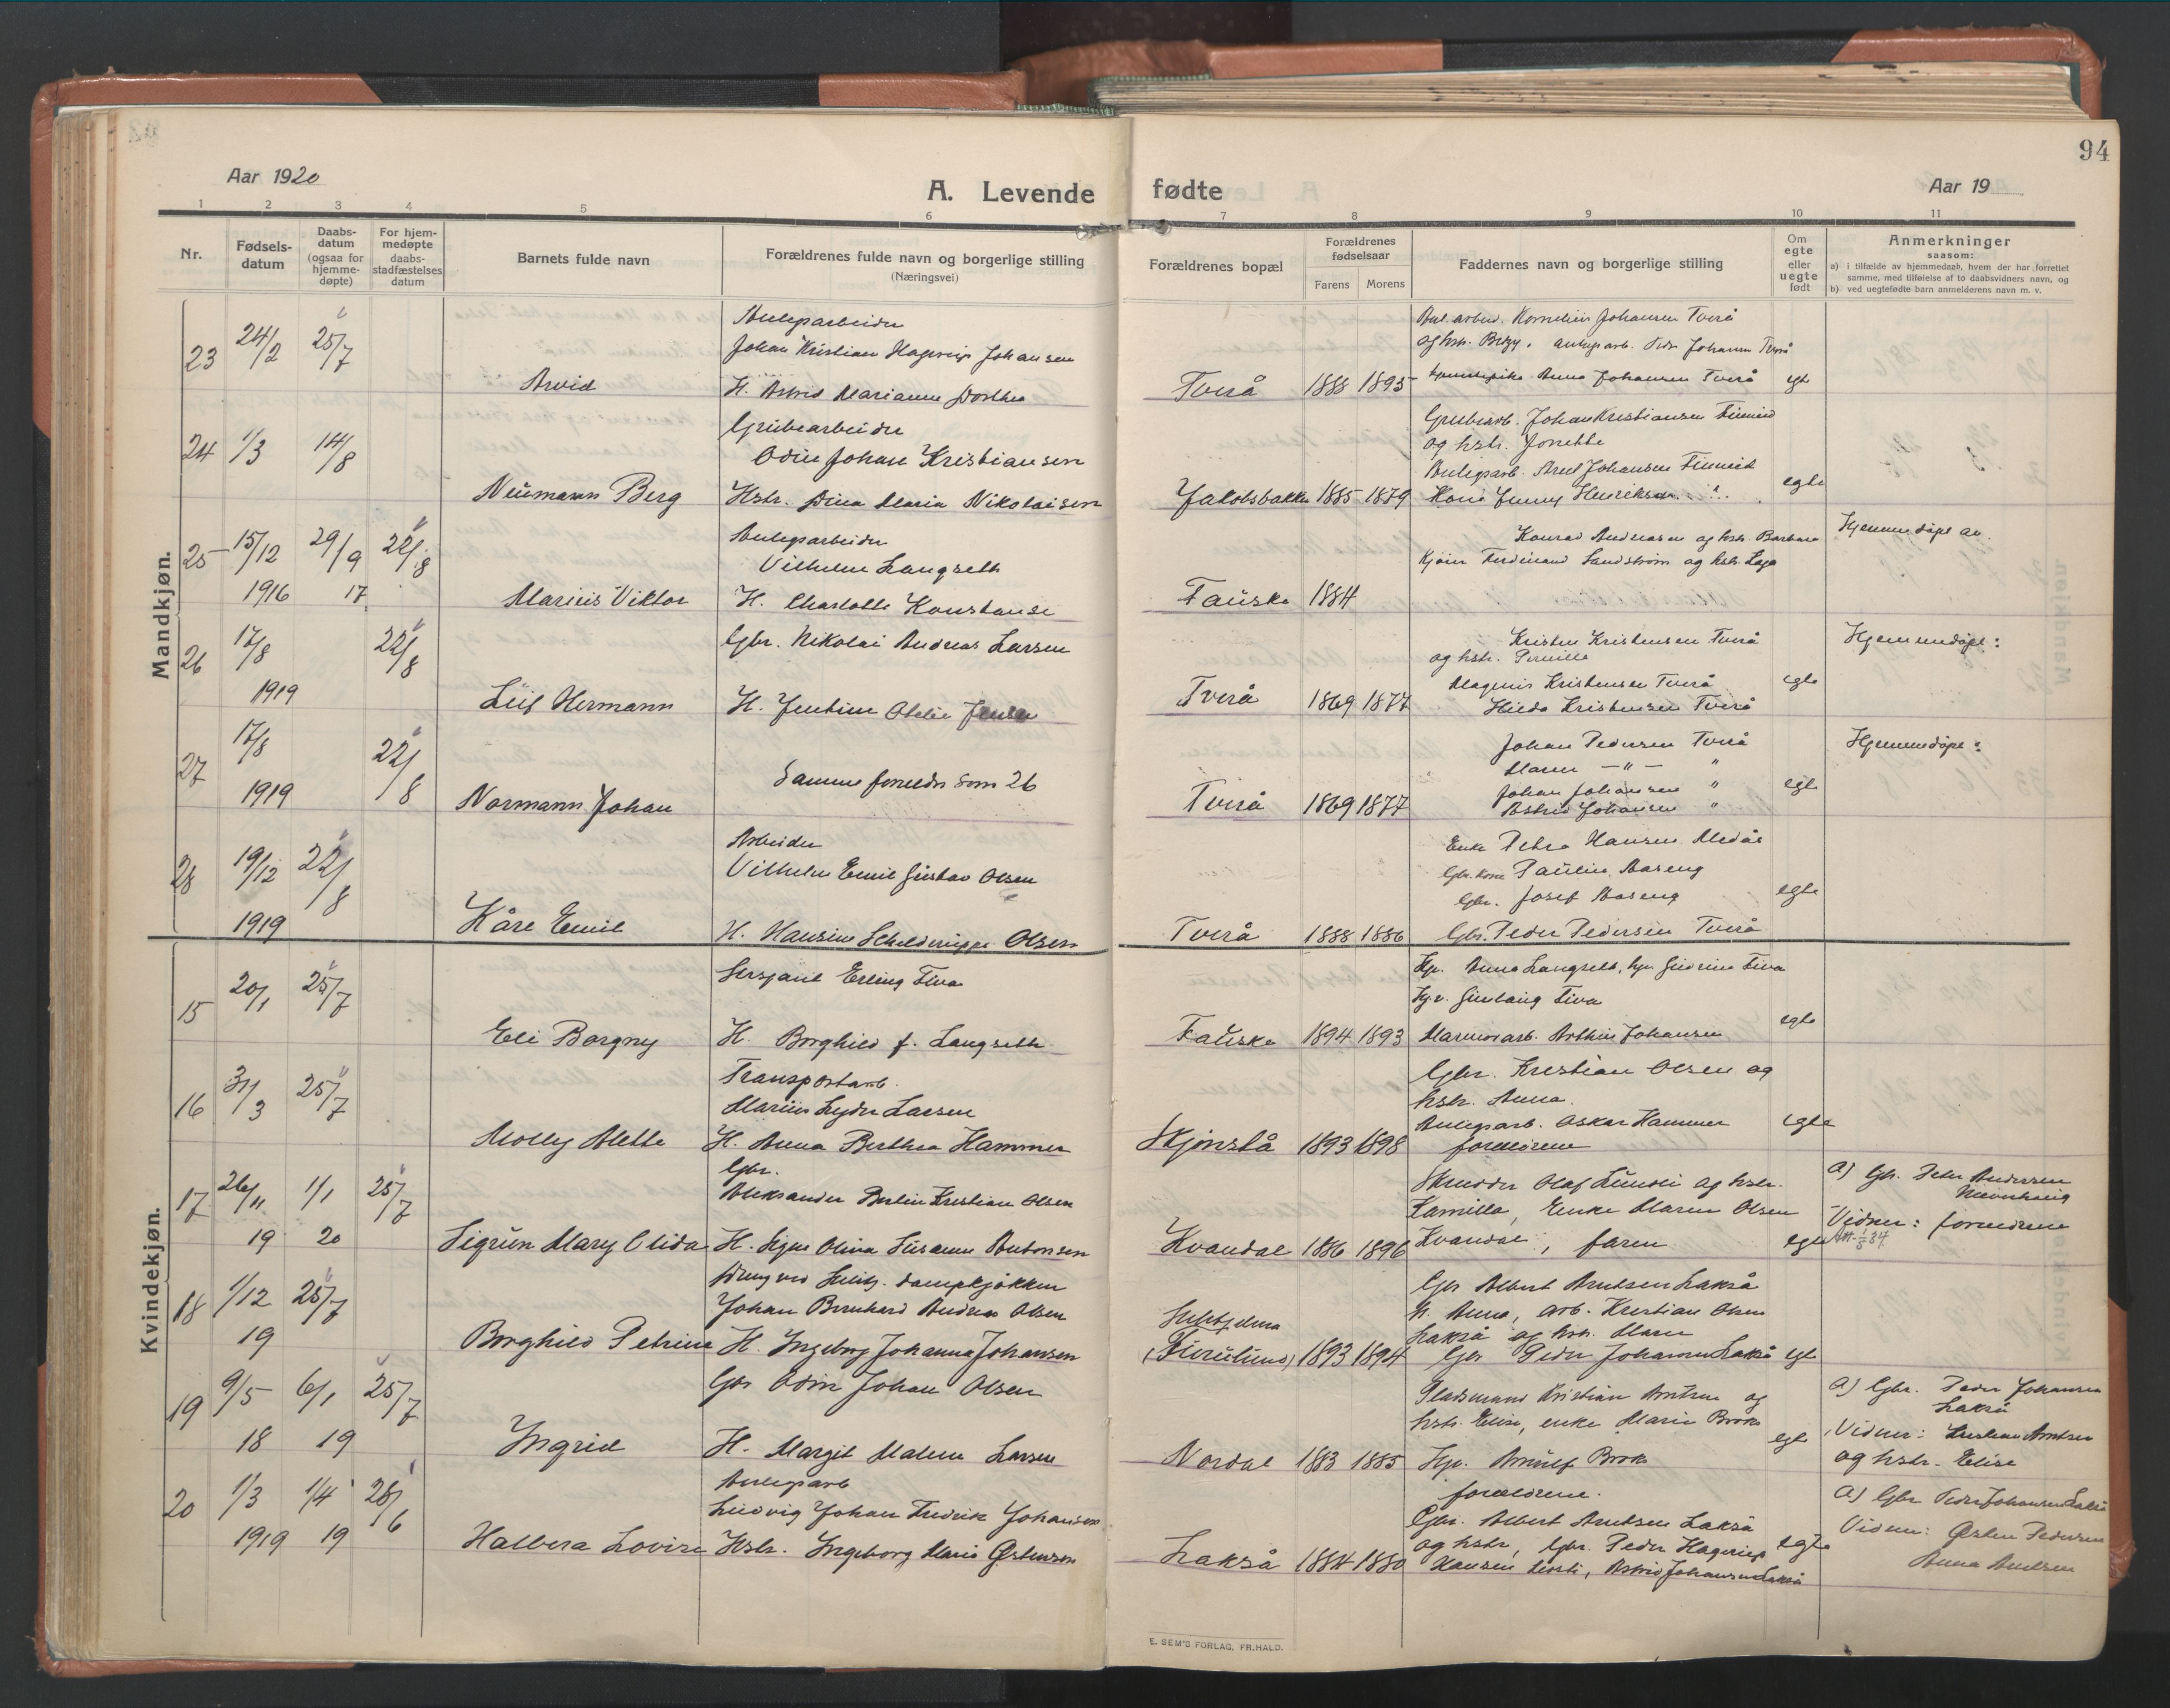 94
Aar 1920
A. Levende fødte
Aar 19
1 2 3 4 5 6 7 8 9 10 11
Nr.
Fødsels-
datum
Daabs-
datum
(ogsaa for
hjemme-
døpte)
For hjem-
medøpte
daabs-
stadfæstelses
datum
Barnets fulde navn
Forældrenes fulde navn og borgerlige stilling
(Næringsvei)
Forældrenes bopæl
Forældrenes
fødselsaar
Farens Morens
Faddernes navn og borgerlige stilling
Om
egte
eller
uegte
født
Anmerkninger
saasom:
a) i tilfælde av hjemmedaab, hvem der har forrettet
samme, med tilføielse af to daabsvidners navn, og
b) ved uegtefødte barn anmelderens navn m. v.
Mandkjøn.
23 24/2 25/7
Arvid
Anlegsarbeider
Johan Kristian Hagerup Johansen
H. Astrid Marianne Dorthea
Tverå 1888 1895
Anl. arbeid. Kornelius Johansen Tverå
og hstr. Bergg. anlegsarb. Peder Johansen Tverå
Anna Johansen Tverå
egte
24 1/3 14/8
Neumann Berg
Grubearbeider
Odin Johan Kristiansen
Hstr. Dina Maria Nikolaisen
Jakobsbakken 1885 1879
Grubearb. Johan Kristiansen Finneid
og hstr. Jonette
Anlegsarb. Arnt Johansen Finneid
Kone Jenny Henriksen
egte
25 15/12 29/9 22/8
1916 17
Marius Viktor
Anlegsarbeider
Vilhelm Langseth
H. Charlotte Konstanse
Fauske 1884
Konrad Andreasen og hstr. Barbara
Kjører Ferdinand Sandstrøm og hstr. Laga
Hjemmedøpt av.
26 17/8 22/8
1919
Leif Hermann
Gbr. Nikolai Andreas Larsen
H. Jentine Otelie Jensen
Tverå 1869 1877
Kristen Kristensen Tverå
og hstr. Pernille
Magnus Kristensen Tverå
Hilda Kristensen Tverå
egte
Hjemmedøpt:
27 17/8 22/8
1919
Normann Johan
Samme foreldre som 26
Tverå 1869 1877
Johan Pedersen Tverå
Maren — " — "
Johan Johansen "
Astrid Johansen "
egte
Hjemmedøpt:
28 19/12 22/8
1919
Kåre Emil
Arbeider
Vilhelm Emil Gustav Olsen
H. Hansine Schelderuppe Olsen
Tverå 1888 1886
Enke Petra Hansen Medås
Gbr. kone Pauline Aaseng
Gbr. Josef Aaseng
Gbr. Peder Pedersen Tverå
egte
Kvindekjøn.
15 20/1 25/7
Eli Borgny
Sersjant Erling Five
H. Borghild f. Langseth
Fauske 1894 1893
Hp. Anna Langseth, hp. Gudrun Five
Hp. Gunlaug Five
Marmorarb. Arthur Johansen
egte
16 31/3 25/7
Molly Alette
Transportarb.
Marius Lyder Larsen
H. Anna Berthea Hammer
Skjønstå 1893 1898
Gbr. Kristian Olsen og
hstr. Anna.
Anlegsarb. Oskar Hammer
foreldrene
egte
17 26/11 1/1 25/7
19 20
Sigrun Mary Clida
Gbr.
Aleksander Berlin Kristian Olsen
H. Signe Olina Susanne Antonsen
Kvandal 1886 1896
Skredder Olaf Lund og hstr.
Kamilla, Enke Maren Olsen
Kvandal, faren
egte
a) Gbr. Peder Andersen
Nævrhaug
Vidner: foreldrene
Att. 1/5 34.
18 1/12 25/7
19
Borghild Petrine
Dreng ved Sulitj. dampkjøkken
Johan Bernhard Andreas Olsen
H. Ingeborg Johanna Johansen
Sulitjelma
(Furulund) 1893 1894
Gbr Albert Arntsen Lakså
H. Anna, arb. Kristian Olsen
Lakså og hstr. Maren
Gbr Peder Johansen Lakså
egte
19 9/5 6/1 25/7
18 19
Ingrid
Gbr Odin Johan Olsen
H. Margit Malene Larsen
Nordal 1883 1885
Pladsmand Kristian Arntsen og
hstr. Elise, enke Maria Brok
Hp. Arnulf Brok
foreldrene.
egte
a) Gbr. Peder Johansen
Lakså
Vidner: Kristian Arntsen
og hstr. Elise
20 1/3 1/4 26/6
1919 19
Halbera Lovise
Anlegsarb
Ludvig Johan Fredrik Johansen
Hstr. Ingeborg Maria Østensen
Lakså 1884 1880
Gbr. Albert Arntsen Lakså
og hstr, Gbr. Peder Hagerup
Hansen, Astrid Johansen Lakså
egte
a) Gbr Peder Johansen Lakså
Vidner: Østen Pedersen
Anna Arntsen
E. SEM'S FORLAG, FR.HALD.